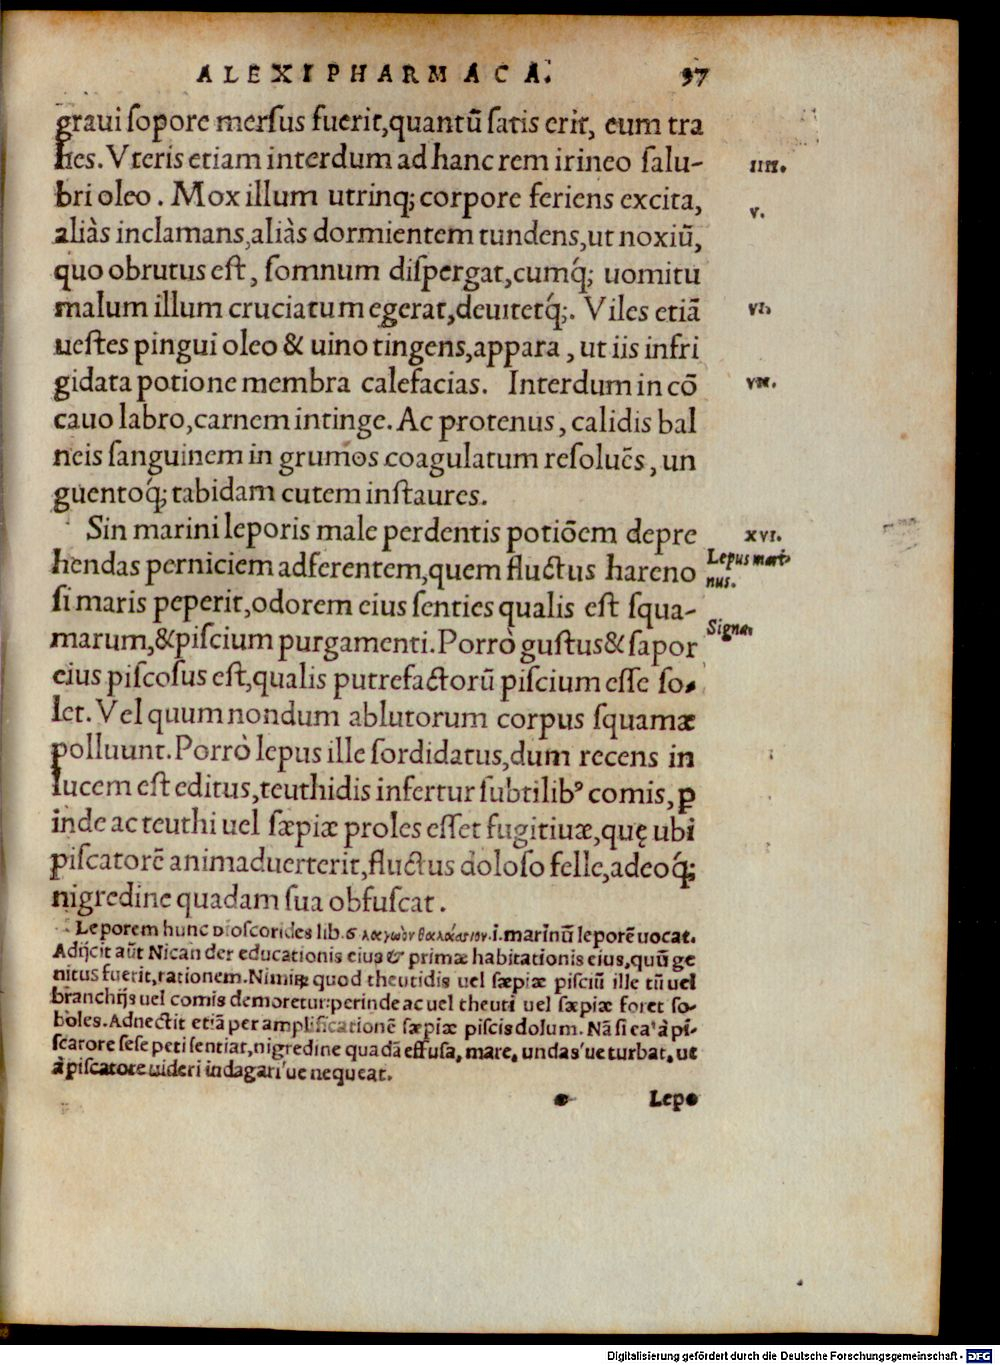 ALEXIPHARMACA. 97
graui ſopore merſus fuerit,quantũ ſatis erit, eum tra
hes. Vteris etiam interdum ad hanc rem irineo ſalu- IIII.
bri oleo. Mox illum utrinq; corpore feriens excita, V.
aliàs inclamans,aliàs dormientem tundens,ut noxiũ,
quo obrutus eſt, ſomnum diſpergat,cumq́; uomitu
malum illum cruciatum egerat,deuitetq́;. Viles etiã VI.
ueſtes pingui oleo & uino tingens,appara, ut iis infri
gidata potione membra calefacias. Interdum in cõ VII.
cauo labro,carnem intinge. Ac protenus, calidis bal
neis ſanguinem in grumos coagulatum reſolues, un
guentoq́; tabidam cutem inſtaures.
Sin marini leporis male perdentis potiõem depre XVI.
hendas perniciem adferentem,quem fluctus hareno Lepus mari-
ſi maris peperit,odorem eius ſenties qualis eſt ſqua- nus.
marum,& piſcium purgamenti. Porrò guſtus & ſapor Signa.
eius piſcoſus eſt,qualis putrefactorũ piſcium eſſe ſo-
let. Vel quum nondum ablutorum corpus ſquamæ
polluunt. Porrò lepus ille ſordidatus,dum recens in
lucem eſt editus,teuthidis inſertur ſubtilibꝰ comis, ꝑ
inde ac teuthi uel ſæpiæ proles eſſet fugitiuæ,quę ubi
piſcatorẽ animaduerterit,fluctus doloſo felle,adeoq́;
nigredine quadam ſua obfuſcat.
Leporem hunc Dioſcorides lib. 6 λαγωὸν θαλάσσιον .i. marinũ leporẽ uocat.
Adijcit aũt Nicander educationis eius & primæ habitationis eius,quũ ge
nitus fuerit,rationem. Nimirꝝ quod theutidis uel ſæpiæ piſciũ ille tũ uel
branchijs uel comis demoretur:perinde ac uel theuti uel ſæpiæ foret ſo-
boles. Adnectit etiã per amplificationẽ ſæpiæ piſcis dolum. Nã ſi ea à pi-
ſcatore ſeſe peti ſentiat,nigredine quadã effuſa, mare, undas'ue turbat, ut
à piſcatore uideri indagari'ue nequeat.
Lepo
Digitalisierung gefördert durch die Deutsche Forschungsgemeinschaft - DFG